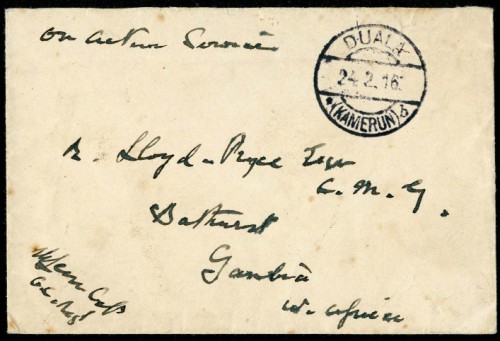 On Active Service
DUALA
24.2.16.
* (KAMERUN) b
Lloyd-Pryce Esqr
C.M.G.
Bathurst
Gambia
W. Africa
Capt